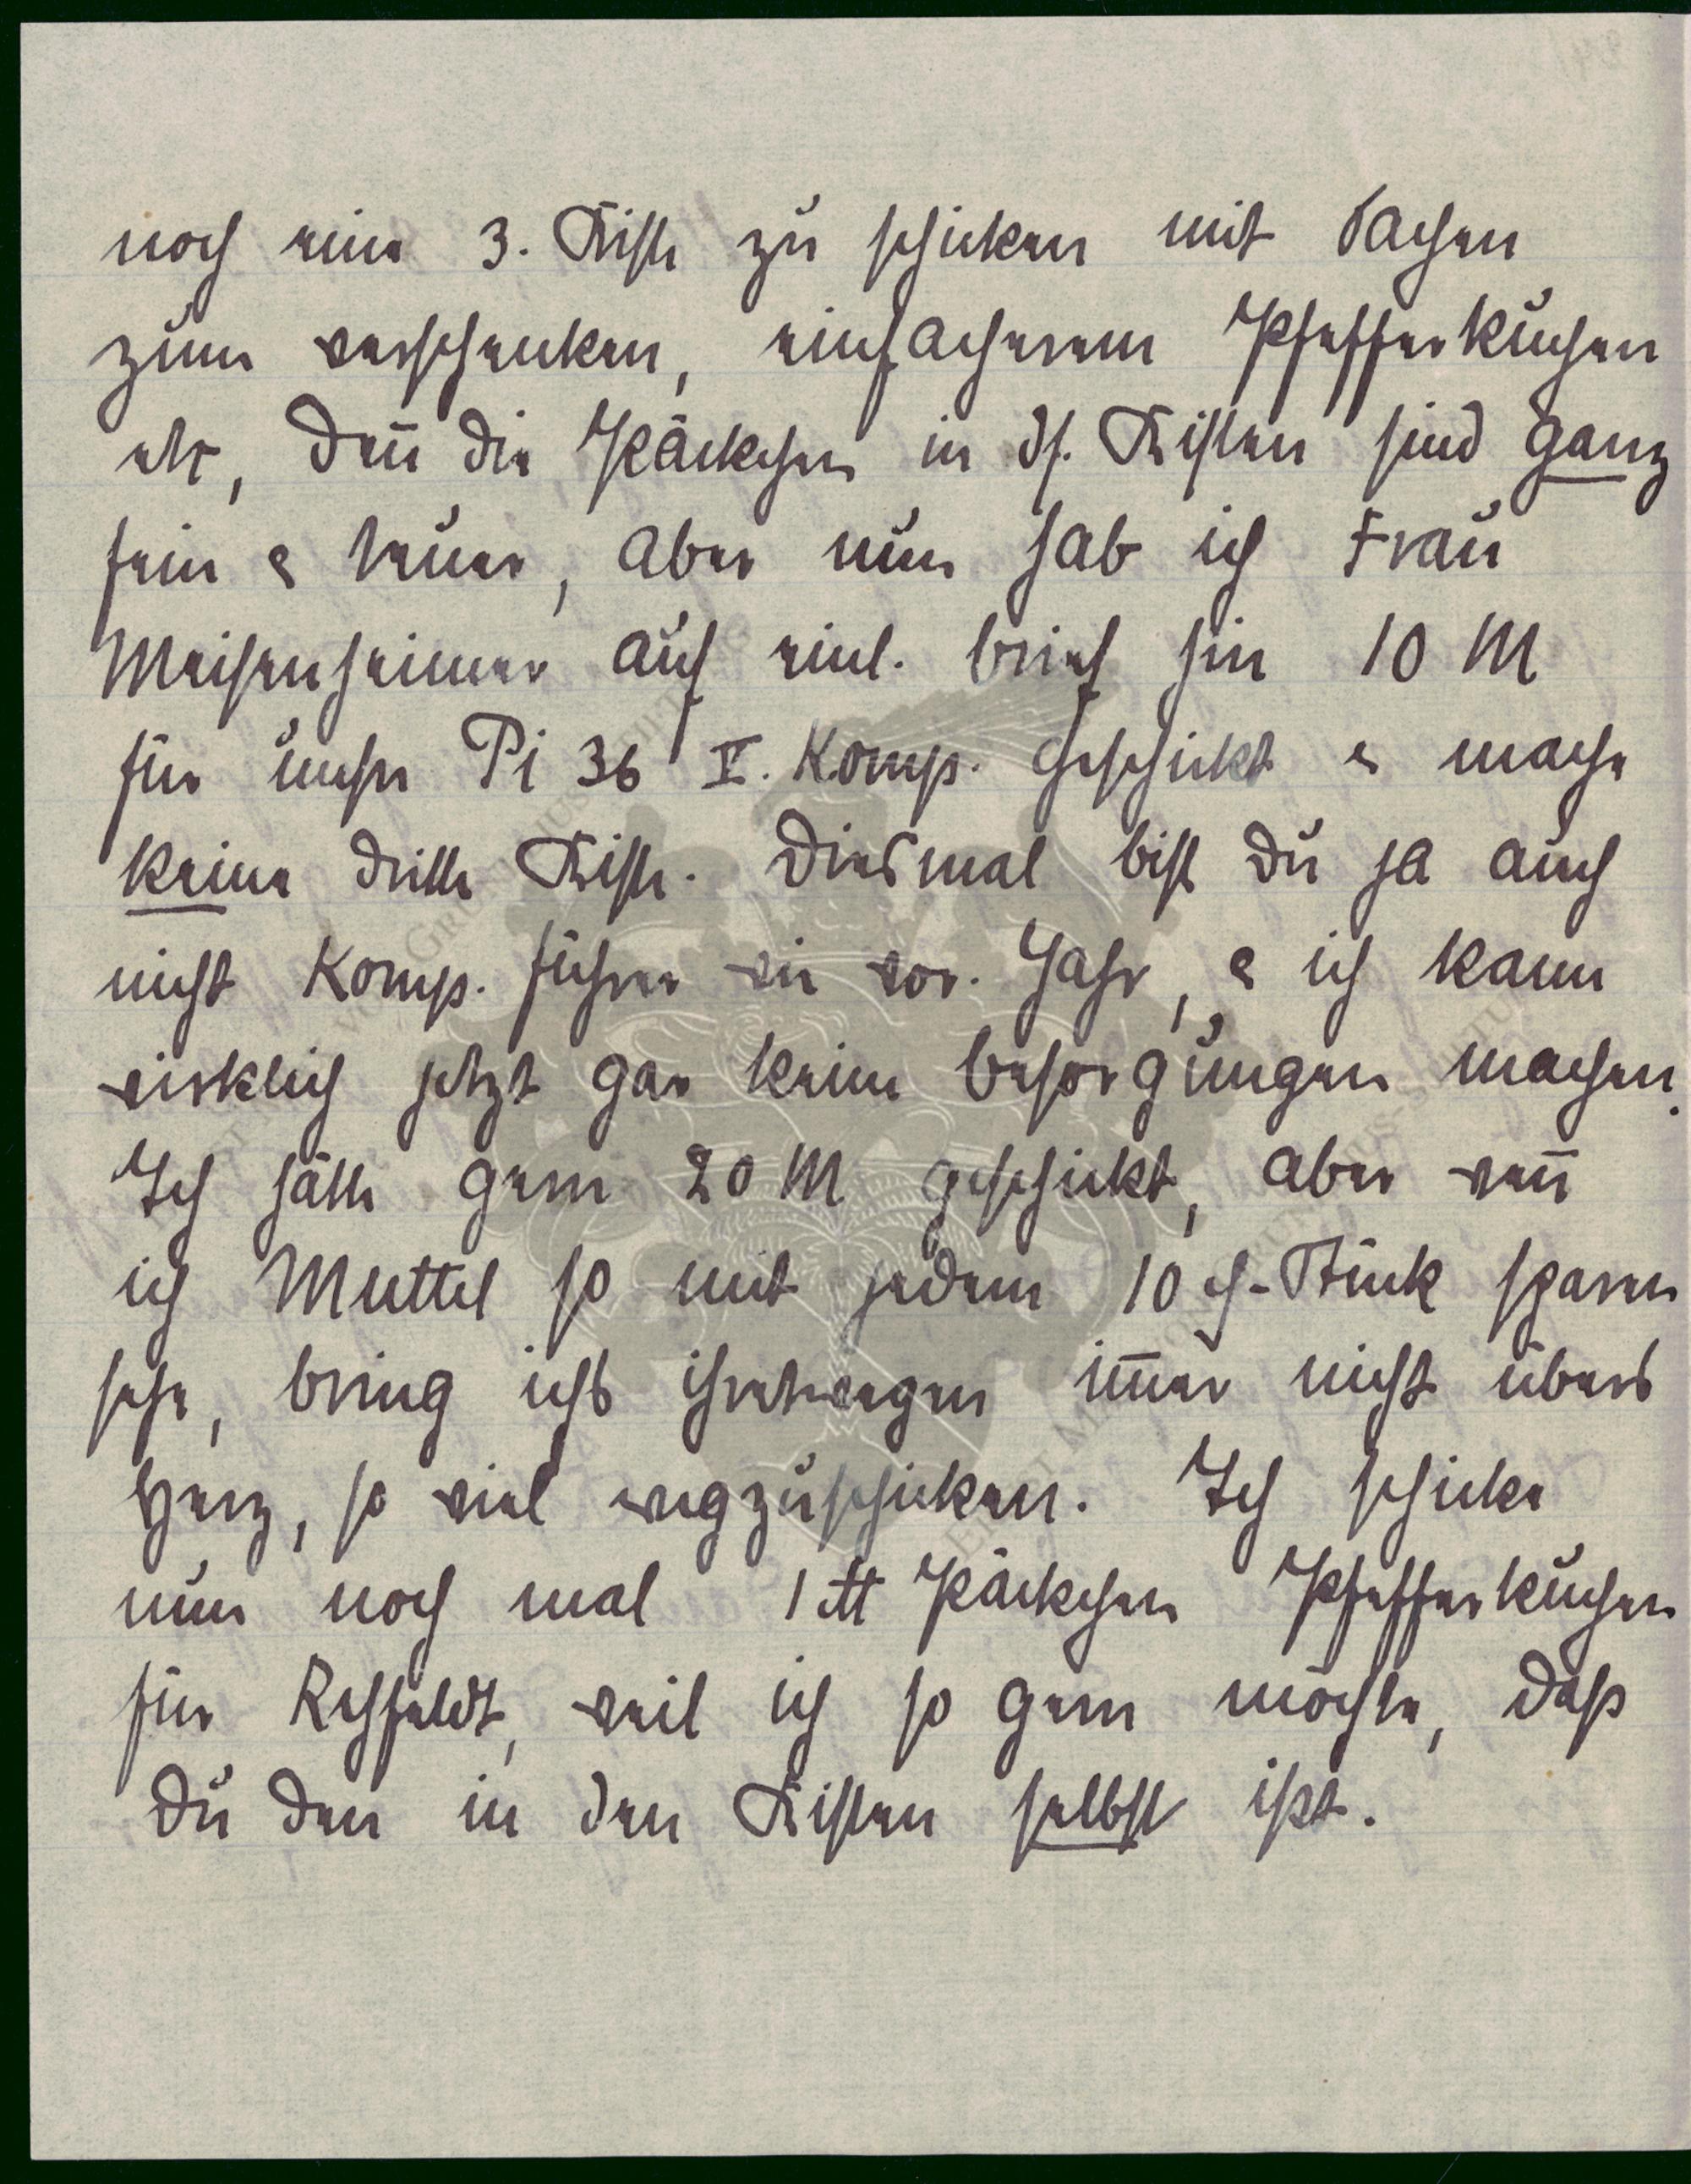 noch eine 3. Kiste zu schicken mit Sachen
zum verschenken, einfacherem Pfefferkuchen
etc, den̄ die Päckchen in ds. Kisten sind ganz
fein & teuer, aber nun hab ich Frau
Meisenheimer auf einl. brief hin 10 M
für eure Pi 36 V. Komp. geschickt & mache
keine dritte Kiste. Diesmal bist Du ja auch
nicht Komp. führer wie vor. Jahr, & ich kann
wirklich jetzt gar keine besorgungen machen.
Ich hätte gern 20 M geschickt, aber wen̄
ich Muttel so mit jedem 10 ₰-Stück sparen
sehe, bring ichs ihretwegen im̄er nicht übers
Herz, so viel wegzuschicken. Ich schicke
nun noch mal 1 ℔ Päckchen Pfefferkuchen
für Rehfeldt, weil ich so gern möchte, dass
Du den in den Kisten selbst isst.